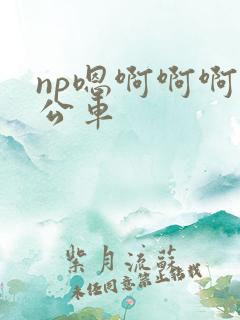 np嗯啊啊啊
公車
紫月流蘇
未任同意禁止轉載